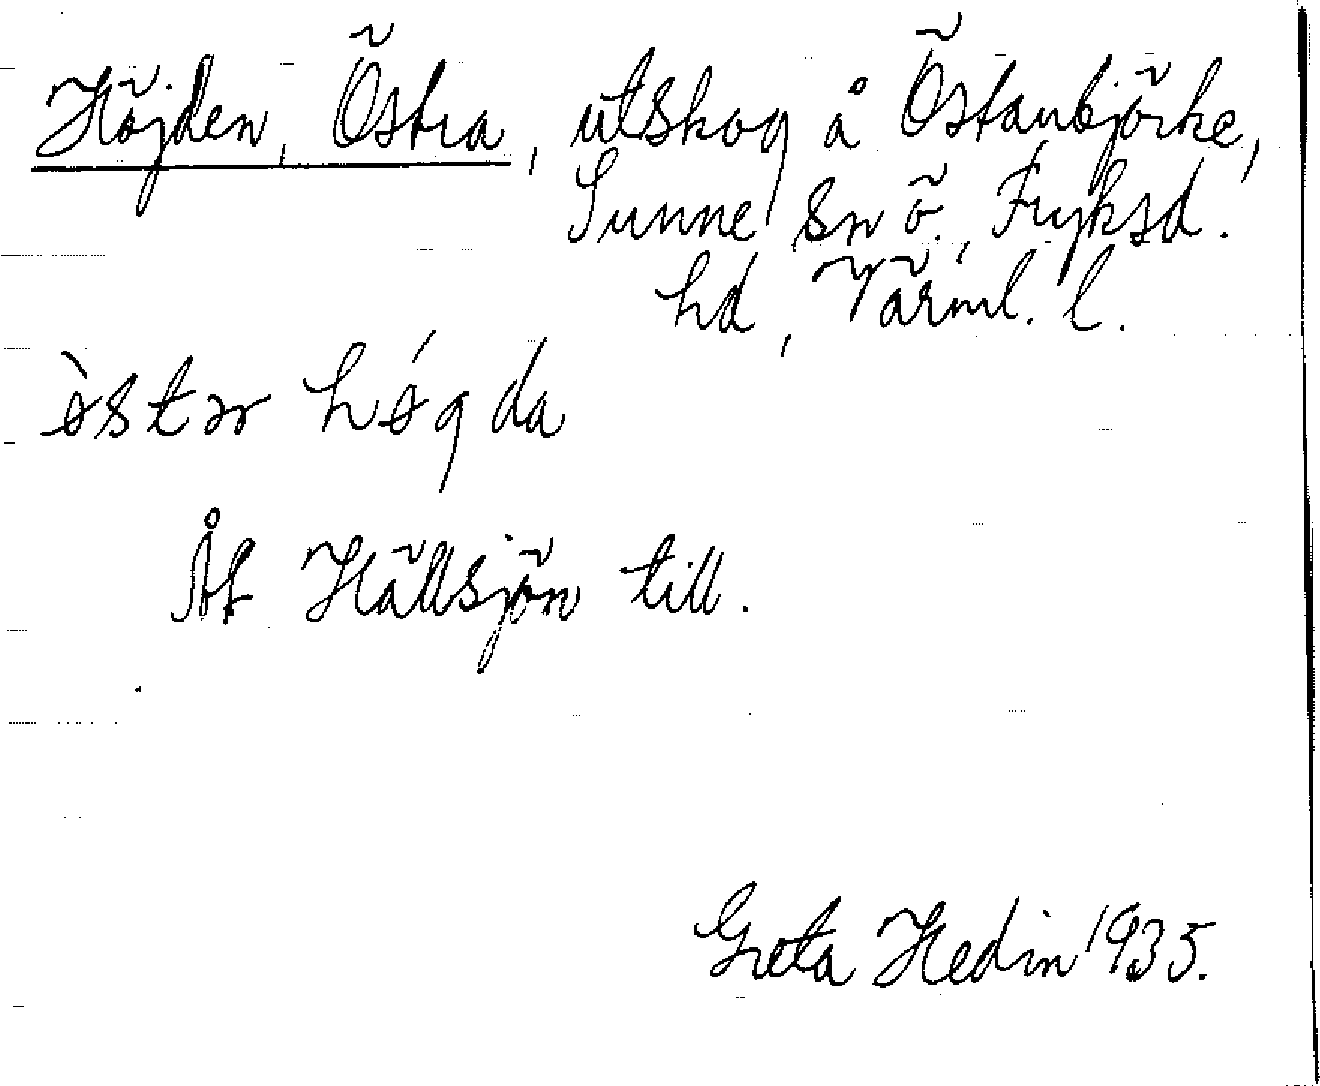 Höjden, Östra, utskog å Östanbjörke,
Sunne sn ö., Fryksd.
hd, Värml. l.
òstər hǿgda
Åt Hällsjön till.
Greta Hedin 1935.